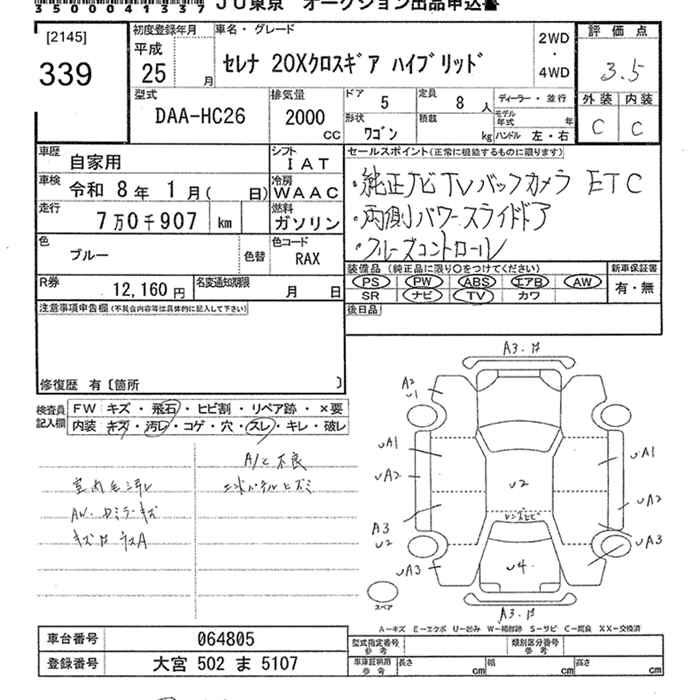 35000041337 JU東京 オークション出品申込書
[2145]
339
初度登録年月
平成
25 月
車名・グレード
セレナ 20Xクロスギア ハイブリッド
2WD
・
4WD
評価点
3.5
外装 内装
C C
型式
DAA-HC26
排気量
2000
CC
ドア
5
定員
8 人
形状
ワゴン
積載
kg
ディーラー・並行
モデル年式 年
ハンドル 左・右
車歴
自家用
シフト
IAT
車検
令和 8年 1月( 日)
冷房
WAAC
走行
7万0千907 km
燃料
ガソリン
色
ブルー
色替
色コード
RAX
R券
12,160円
名変通知期限
月 日
セールスポイント(正常に機能するものに限ります)
・純正ナビTVバックカメラ ETC
・両側パワースライドドア
・クルーズコントロール
装備品(純正品に限り○をつけてください)
PS PW ABS エアB AW
SR ナビ TV カワ
新車保証書
有・無
後日品
注意事項申告欄(不具合内容等は具体的に記入して下さい)
修復歴 有〔箇所 〕
検査員記入欄
FW キズ・飛石・ヒビ割・リペア跡・×要
内装 キズ・汚レ・コゲ・穴・スレ・キレ・破レ
A/C 不良
A3.
A2
U1
UA1
UA2
A3
U2
UA3
U2
U4
UA1
UA2
UA3
A3.
スペア
A－キズ E－エクボ U－凹み W－補修跡 S－サビ C－腐食 XX－交換済
車台番号 064805
登録番号 大宮 502 ま 5107
型式指定番号
参考
類別区分番号
参考
車庫証明用
参考
長さ cm
幅 cm
高さ cm